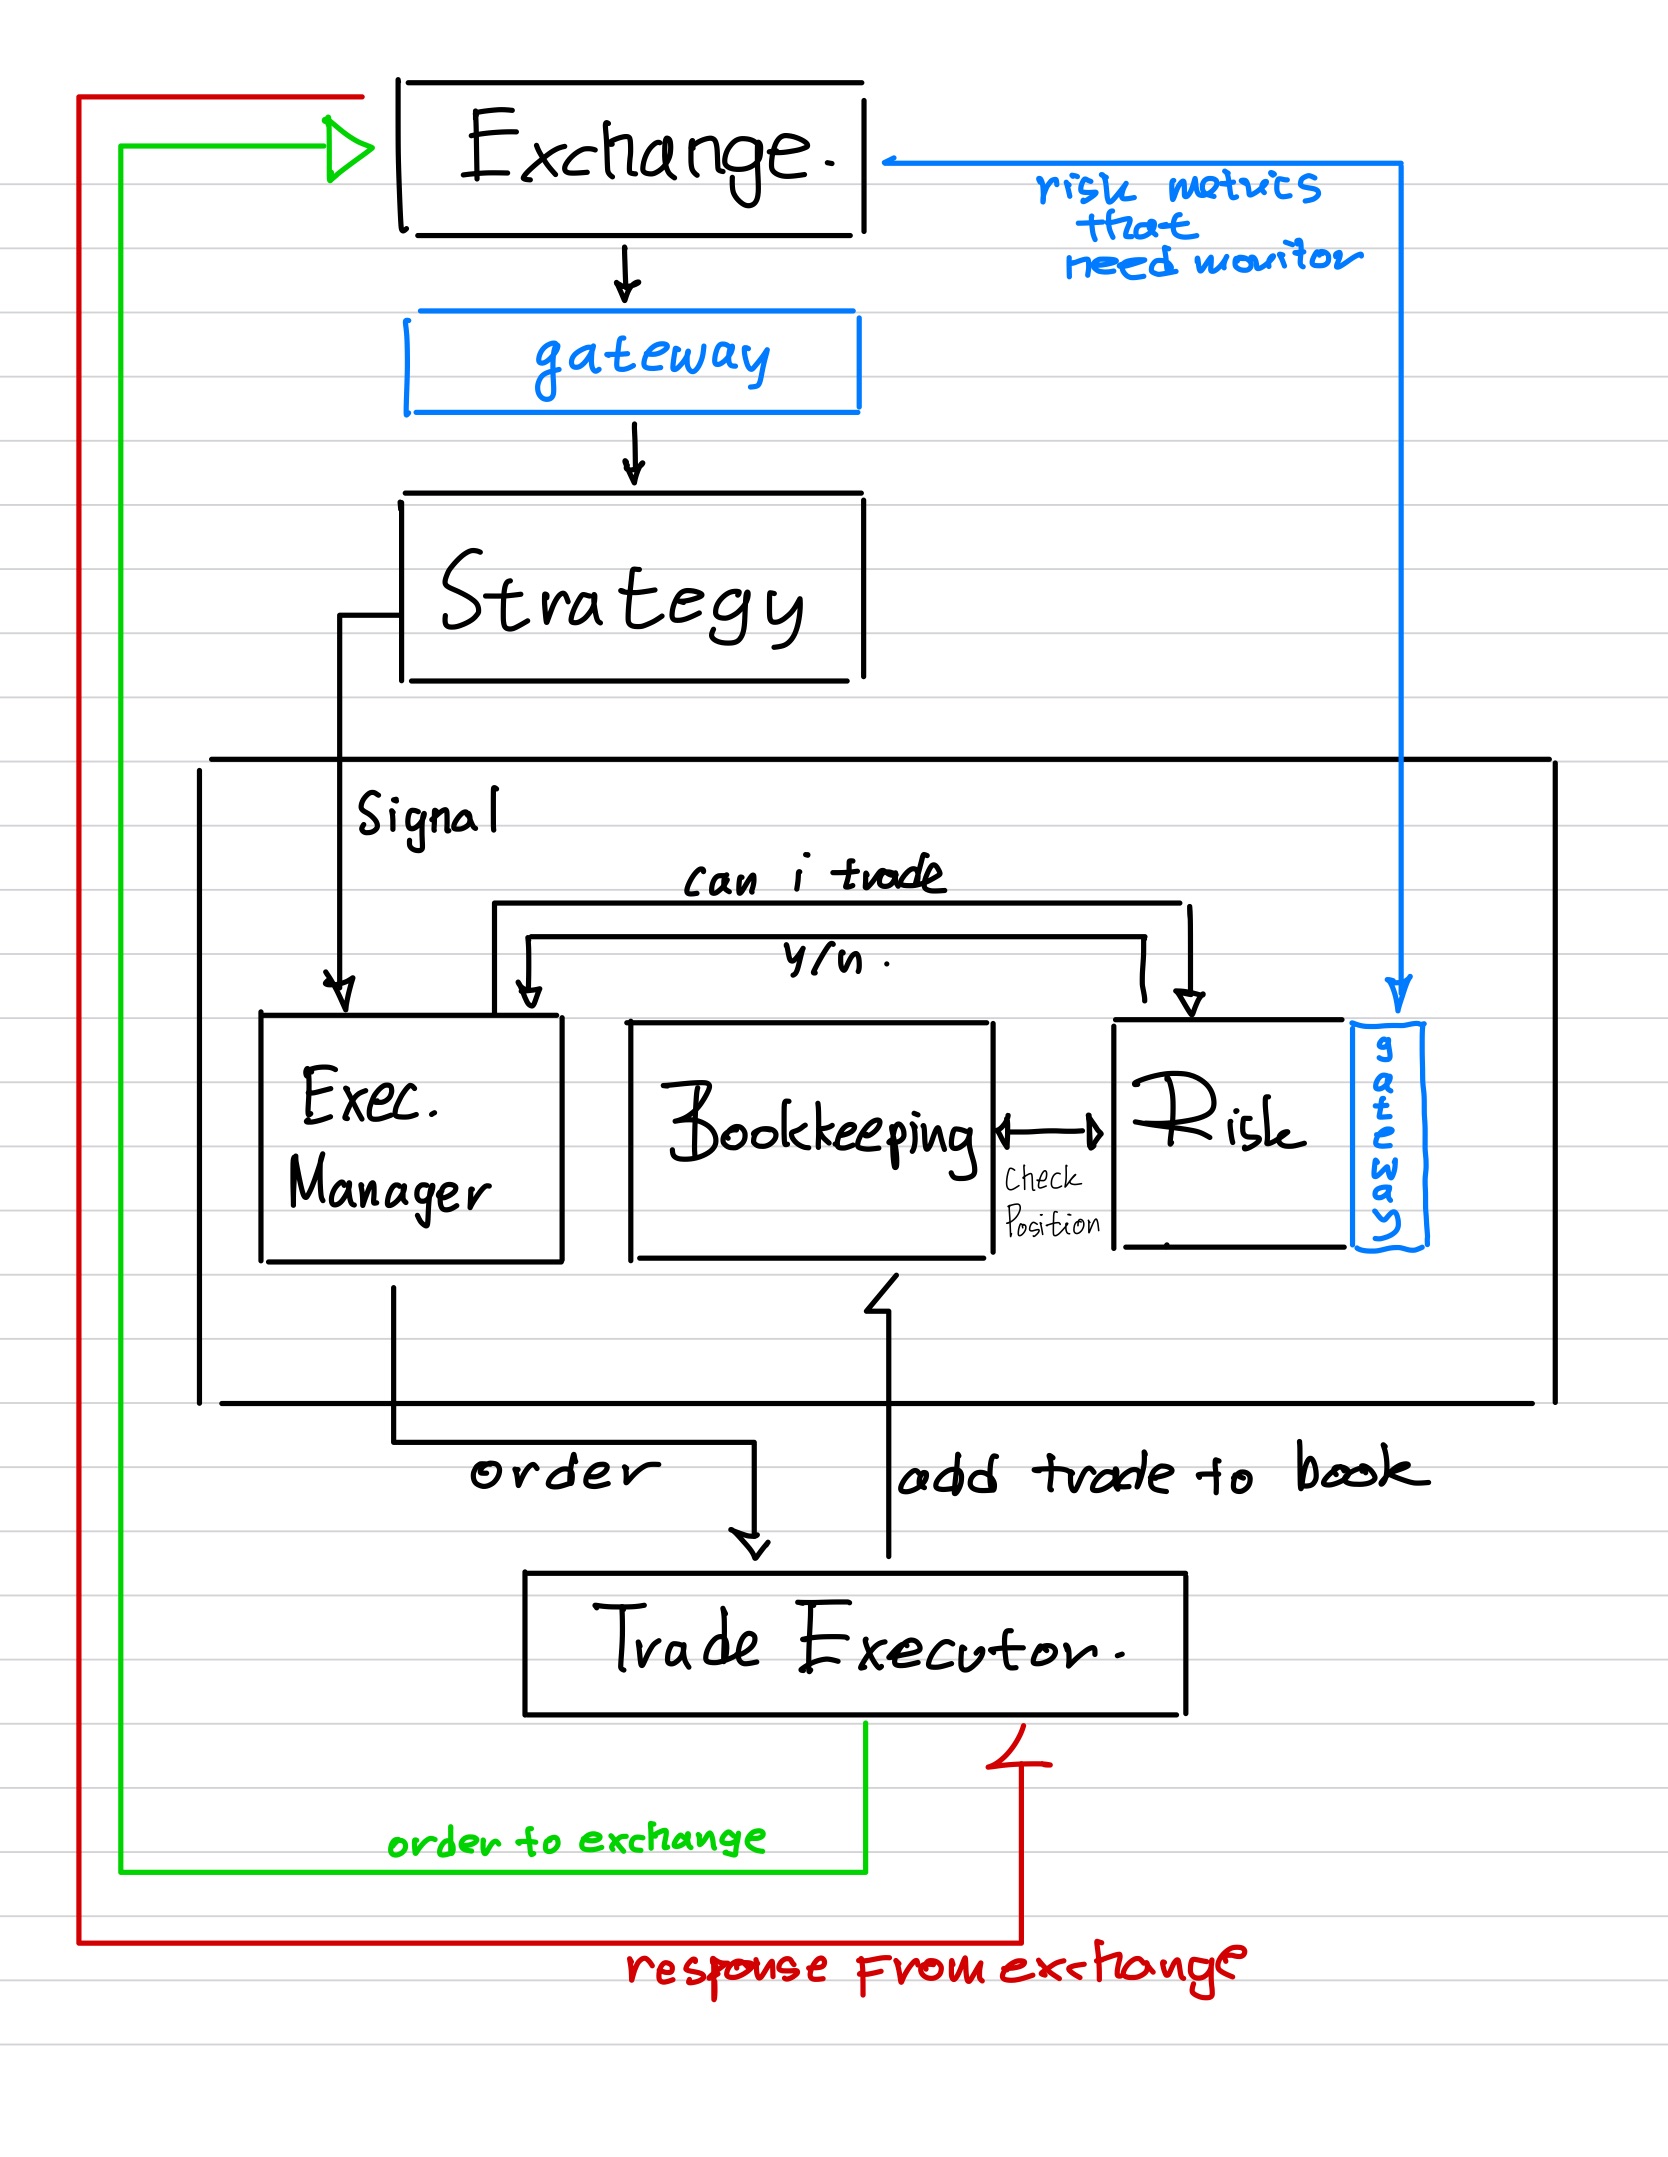 Exchange.
risk metrics
that
need monitor
gateway
Strategy
Signal
can i trade
y/n.
Exec.
Manager
Bookkeeping
Check
Position
Risk
gateway
order
add trade to book
Trade Executor.
order to exchange
response From exchange